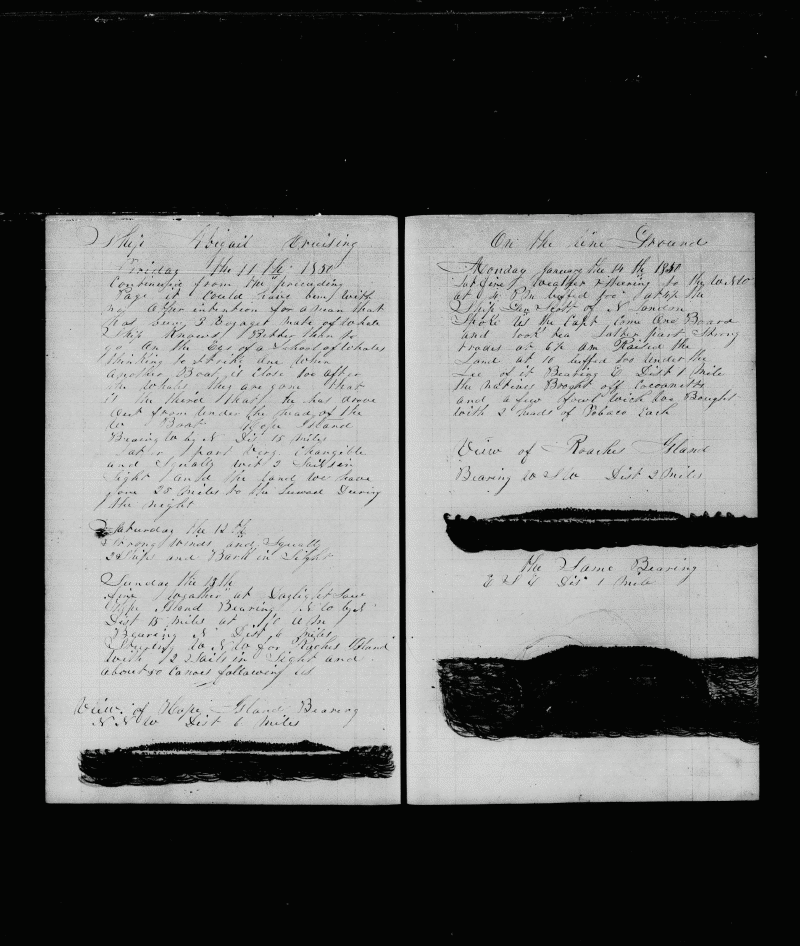 Ship Abigail Cruising
Friday the 11th 1850
Continuied from the preceeding
Page it could have been with
no other intention for a man that
has bum 3 Voyages mate of Whale
Ship Knows Better than to
go On the Eye of a School of Whales
thinking to Strike One When
another Boat is Close too after
the Whales they are gone that
is the third that he has drove
Out from under the head of the
W Boat Hope Island
Bearing W by N Dist 15 miles
Later part Very Changible
and Squally with 2 Sails in
Sight and the Land we have
gone 25 miles to the Leward During
the night
Saturday the 12th
Strong Winds and Squally
2 Ships and Bark in Sight
Sunday the 13th
fine Weather at Daylight Saw
Hope Island Bearing N W by N
Dist 15 miles at A M
Bearing N Dist 4 miles
Steering W N W for Roches Island
With 2 Sails in Sight and
about 30 Canoes following us
View of Hope Island Bearing
N N W Dist 6 Miles
On the Line Ground
Monday January the 14th 1850
fine Weather Steering to the W N W
at 4 P M luffed too
Ship Geo Scott of N London
Spoke us the Capt Come One Board
and took tea Latter part Strong
trades at 6 A M Raised the
Land at 10 luffed too Under the
Lee of it Bearing E Dist 1 Mile
the natives Broght off Cocoanuts
and a few fowl wich we Bought
With 2 heads of Tobaco Each
View of Roaches Island
Bearing W S W Dist 2 Miles
the Same Bearing
E S E Dis 1 Mile